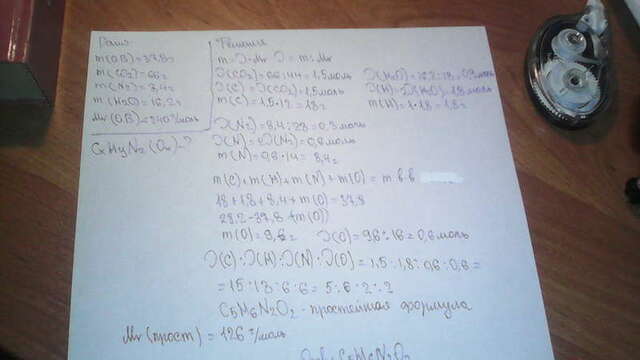 Дано:
m(O.B)=37,8г
m(CO2)=66г
m(N2)=8,4г
m(H2O)=16,2г
Mr(O.B)<240г/моль
CxHyNz(Ow)-?
Решение
m=ν·Mr ν=m:Mr
ν(CO2)=66:44=1,5моль
ν(C)=ν(CO2)=1,5моль
m(C)=1,5·12=18г
ν(H2O)=16,2:18=0,9моль
ν(H)=2ν(H2O)=1,8моль
m(H)=1·1,8=1,8г
ν(N2)=8,4:28=0,3моль
ν(N)=2ν(N2)=0,6моль
m(N)=0,6·14=8,4г
m(C)+m(H)+m(N)+m(O)=m в в
18+1,8+8,4+m(O)=37,8
28,2=37,8-m(O)
m(O)=9,6г ν(O)=9,6:16=0,6моль
ν(C):ν(H):ν(N):ν(O)=1,5:1,8:0,6:0,6=
=15:18:6:6=5:6:2:2
C5H6N2O2-простейшая формула
Mr(прост)=126г/моль
C5H6N2O2